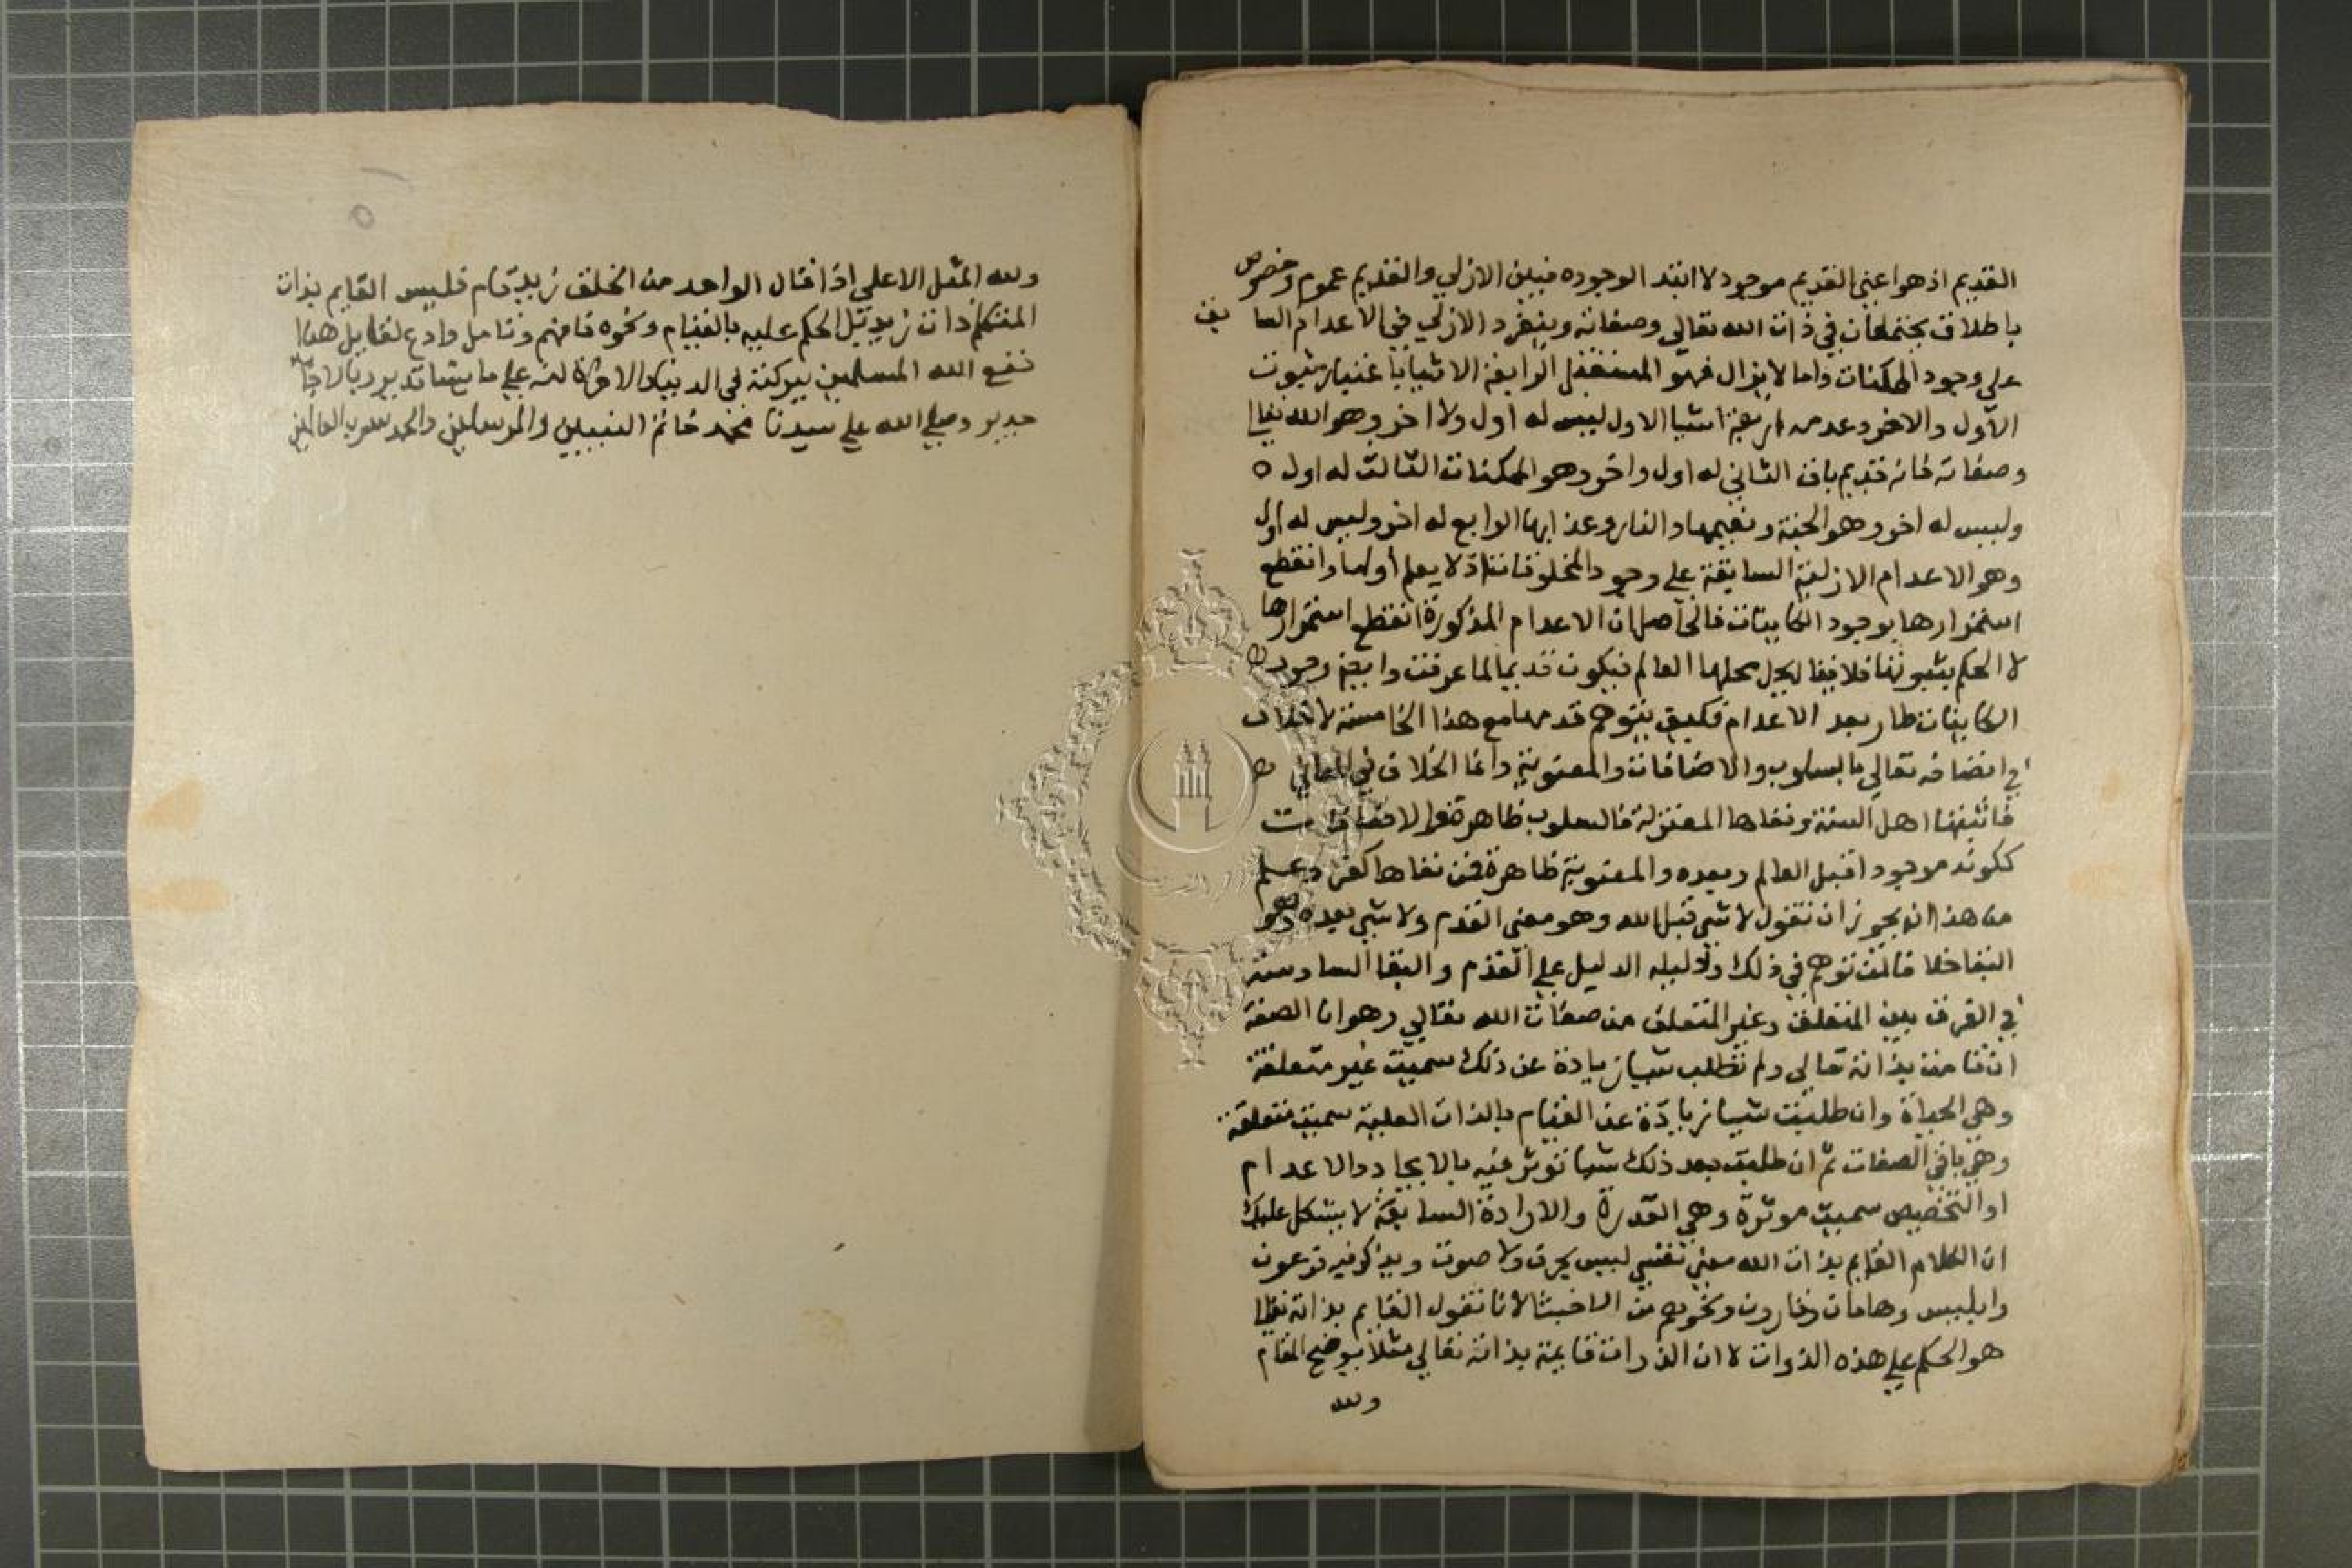 القديم اذ هو اعني القديم موجود لا ابتد الوجوده فبين الازلي والقديم عموم وخصوص
باطلاق يجتمعان في ذات الله تعالي وصفاته وينفرد الازلي في الاعدام السا بقة
علي وجود الممكنات واما لا يزال فهو المستقبل الرابعة الاشيا باعتبار ثبوت
الاول والاخر وعدمه اربعة اشيا الاول ليس له اول ولا اخر وهو الله تعالي
وصفاته فانه قديم باق الثاني له اول واخر وهو الممكنات الثالث له اول ه
وليس له اخر وهو الجنة ونعيمها والنار وعذابها الرابع له اخر وليس له اول
وهو الاعدام الازلية السابقة علي وجود المخلوقات اذ لا يعلم أولها وانقطع
استمرارها بوجود الكاينات فالحاصل ان الاعدام المذكورة انقطع استمرارها
لا الحكم بثبوتها فلا يقال يحل محلها العالم فيكون قديما لما عرفت وايضا وجود
الكاينات طار بعد الاعدام فكيف يتوهم قدمها مع هذا الخامسة لا خلاف
في اتصافه تعالي بالسلوب والاضافات والمعنوية وانما الخلاف في المعاني
فاثبتها اهل السنة ونفاها المعتزلة فالسلوب ظاهرة والاضافات
ككونه موجودا قبل العالم وبعده والمعنوية ظاهرة فمن نفاها كفر وعلم
من هذا انه يجوز ان نقول لا شي قبل الله وهو معني القدم ولا شي بعده وهو
البقا خلافا لمن توهم في ذلك ودليله الدليل علي القدم والبقا السادسة
في الفرق بين المتعلق وغير المتعلق من صفات الله تعالي وهو ان الصفة
ان قامت بذاته تعالي ولم تطلب شيا زيادة عن ذلك سميت غير متعلقة
وهي الحياة وان طلبت شيا زيادة عن القيام بالذات العلية سميت متعلقة
وهي باقي الصفات ثم ان طلبت بعد ذلك شيا توثر فيه بالايجاد والاعدام
او التخصيص سميت موثرة وهي القدرة والارادة السابعة لا يشكل عليك
ان الكلام القايم بذات الله معني نفسي ليس بحرف ولا صوت ويذكر فيه فرعون
وابليس وهامان وقارون ونحوهم من الاخبثا لانا نقول القايم بذاته تعالي
هو الحكم علي هذه الذوات لا ان الذوات قايمة بذاته تعالي مثلا يوضح المقام
ولله
ولله المثل الاعلي اذا قال الواحد من الخلق زيد قام فليس القايم بذات
المتكلم ذات زيد بل الحكم عليه بالقيام ونحوه فافهم وتامل وادع لقايل هذا
نفع الله المسلمين ببركته في الدنيا والاخرة انه علي ما يشا قدير وبالاجابة
جدير وصلي الله علي سيدنا محمد خاتم النبيين والمرسلين والحمد لله رب العالمين